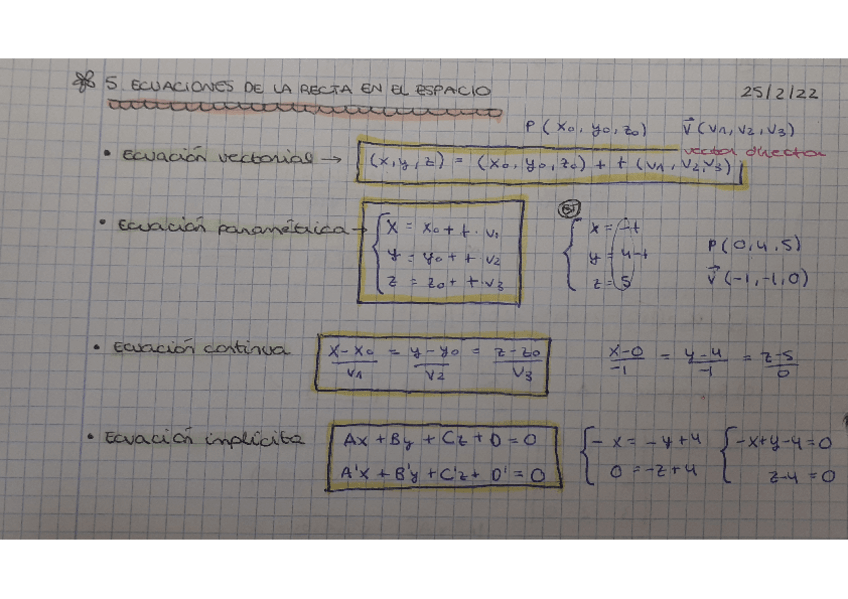 * 5. ECUACIONES DE LA RECTA EN EL ESPACIO 25/2/22
P (x₀, y₀, z₀) v⃗ (v₁, v₂, v₃)
vector director
• Ecuación vectorial → (x, y, z) = (x₀, y₀, z₀) + t (v₁, v₂, v₃)
• Ecuación paramétrica → { x = x₀ + t · v₁ { x = -t
y = y₀ + t · v₂ y = 4-t P (0, 4, 5)
z = z₀ + t · v₃ z = 5 v⃗ (-1, -1, 0)
• Ecuación continua (x-x₀)/v₁ = (y-y₀)/v₂ = (z-z₀)/v₃ (x-0)/-1 = (y-4)/-1 = (z-5)/0
• Ecuación implícita Ax + By + Cz + D = 0 { -x = -y+4 { -x+y-4=0
A'x + B'y + C'z + D' = 0 0 = -z+4 z-4=0